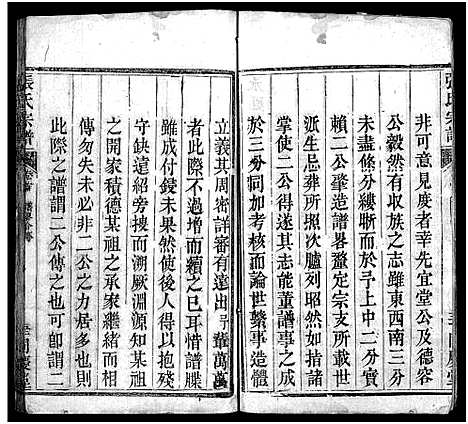 張氏宗譜
非可意見度者幸先宜堂公及德容
公毅然有収族之志雖東西南三分
未盡條分縷晰而於予上中二分實
賴二公肇造譜畧釐定宗支所載
派生忌葬所照次臚列昭然如在目
掌使二公得遂其志能董譜事之成
於三分同加考核而論世繫事造體
立義其周密詳審有遠出予輩萬萬
者此際不過增而續之已耳惜譜牒
雖成付鋟未果然使後人得以抱殘
守缺遠紹旁搜而溯厥淵源知某祖
之開家積德某祖之承家繼緒而同
傳勿失未必非二公之力居多也則
此際之譜謂二公傳之也可卽謂二
張氏宗譜